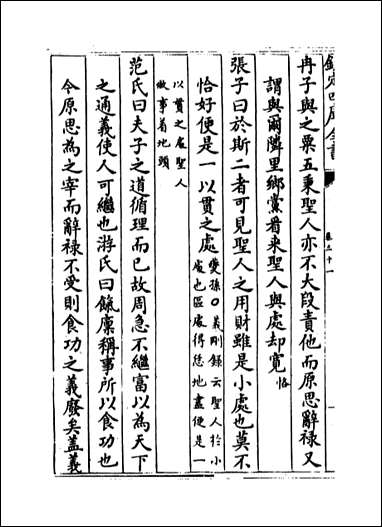 欽定四庫全書
卷三十一
冉子與之粟五秉聖人亦不大段責他而原思辭祿又
謂與爾隣里鄉黨看來聖人與處却寛恪
張子曰於斯二者可見聖人之用財雖是小處也莫不
恰好便是一以貫之處夔孫○義剛錄云聖人於小
處也區處得恁地盡便是一
以貫之處聖人
做事着地頭
范氏曰夫子之道循理而已故周急不繼富以為天下
之通義使人可繼也游氏曰餼廩稱事所以食功也
今原思為之宰而辭祿不受則食功之義廢矣蓋義